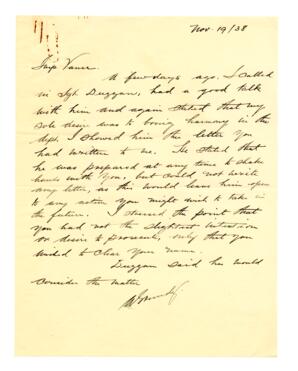 Nov. 19/38
A few days ago I called
in Sgt. Duggan, had a good talk
with him and again stated that my
sole desire was to bring harmony in the
dept. I showed him the letter you
had written to me. He stated that
he was prepared at any time to shake
hands with you, but could not write
any letter, as this would leave him open
to any action you might wish to take in
the future. I stressed the point that
you had not the slightest intention
or desire to prosecute, only that you
wished to clear your name.
Duggan said he would
consider the matter